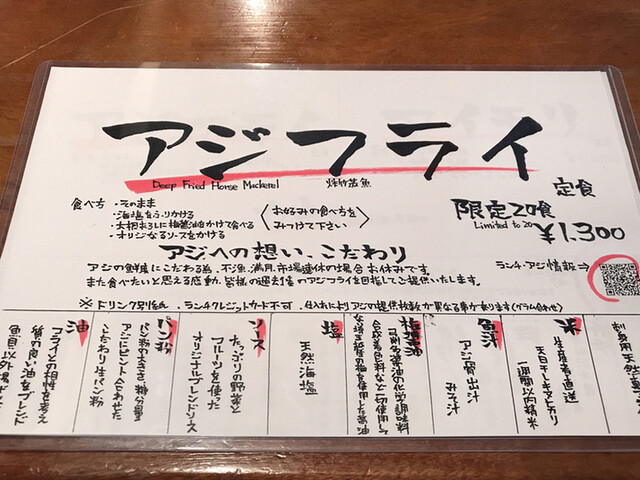 アジフライ
Deep Fried Horse Mackerel
定食
限定20食
Limited to 20
¥1,300
食べ方
・そのまま
・海塩をふりかける
・大根おろしに梅醤油をかけて食べる
・オリジナルソースをかける
〈お好みの食べ方をみつけて下さい〉
アジへの想い、こだわり
アジの鮮度にこだわる為、不漁、満月、市場連休の場合お休みです。
また食べたいと思える感動、皆様の過去1番のアジフライを目指してご提供いたします。
ランチ・アジ情報→
※ドリンク別紙、ランチクレジットカード不可、仕入れによりアジの提供枚数が異なる事があります(グラム合わせ)
米
生産者直送
天日干しキヌヒカリ
一週間以内精米
魚汁
アジ節出汁
みそ汁
梅醤油
塩
天然海塩
ソース
たっぷりの野菜と
フルーツを使った
オリジナルブレンドソース
パン粉
パン粉の大きさ、糖分量
アジにピント合わせた
こだわり生パン粉
油
フライとの相性を考え
質の良い油をブレンド